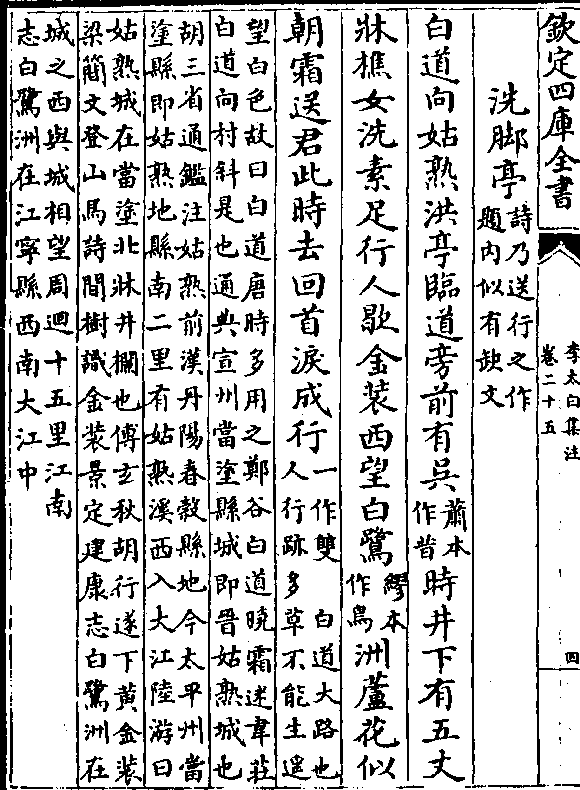 欽定四庫全書
李太白集注
卷二十五
四
洗脚亭 詩乃送行之作題内似有缺文
白道向姑熟洪亭臨道旁前有吳 蕭本作昔 時井下有五丈
牀樵女洗素足行人歇金装西望白鷺 繆本作烏 洲蘆花似
朝霜送君此時去回首淚成行 一作雙 白道大路也
人行跡多草不能生遥
望白色故曰白道唐時多用之鄭谷白道曉霜迷韋莊
白道向村斜是也通典宣州當塗縣城即晉姑熟城也
胡三省通鑑注姑熟前漢丹陽春穀縣地今太平州當
塗縣即姑熟地縣南二里有姑熟溪西入大江陸游曰
姑熟城在當塗北牀井欄也傅玄秋胡行遂下黄金装
梁簡文登山馬詩間樹識金装景定建康志白鷺洲在
城之西與城相望周迴十五里江南
志白鷺洲在江寧縣西南大江中